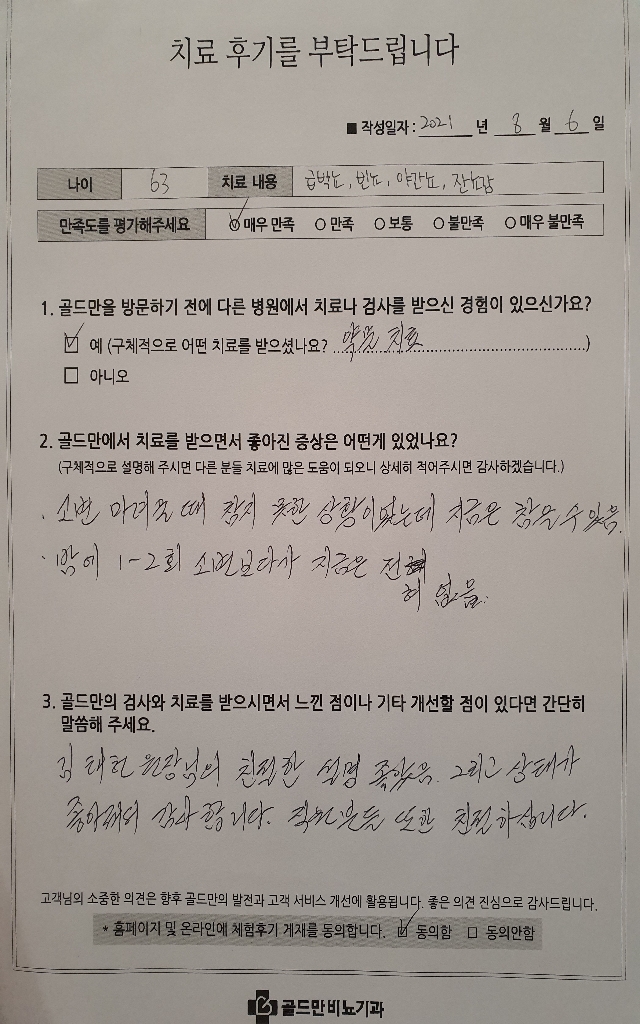 치료 후기를 부탁드립니다
■ 작성일자 : 2021 년 8 월 6 일
나이 63 치료 내용 급박뇨, 빈뇨, 야간뇨, 잔뇨감
만족도를 평가해주세요 매우 만족 만족 보통 불만족 매우 불만족
1. 골드만을 방문하기 전에 다른 병원에서 치료나 검사를 받으신 경험이 있으신가요?
예 (구체적으로 어떤 치료를 받으셨나요? 약물 치료)
아니오
2. 골드만에서 치료를 받으면서 좋아진 증상은 어떤게 있었나요?
(구체적으로 설명해 주시면 다른 분들 치료에 많은 도움이 되오니 상세히 적어주시면 감사하겠습니다.)
· 소변 마려울 때 참지 못한 상황이었는데 지금은 참을 수 있음.
· 밤에 1-2회 소변보다가 지금은 전
혀 없음.
3. 골드만의 검사와 치료를 받으시면서 느낀 점이나 기타 개선할 점이 있다면 간단히
말씀해 주세요.
김태헌 원장님의 친절한 설명 좋았음. 그리고 상태가
좋아져서 감사합니다. 직원분들 또한 친절하십니다.
고객님의 소중한 의견은 향후 골드만의 발전과 고객 서비스 개선에 활용됩니다. 좋은 의견 진심으로 감사드립니다.
* 홈페이지 및 온라인에 체험후기 게재를 동의합니다. 동의함 동의안함
골드만비뇨기과